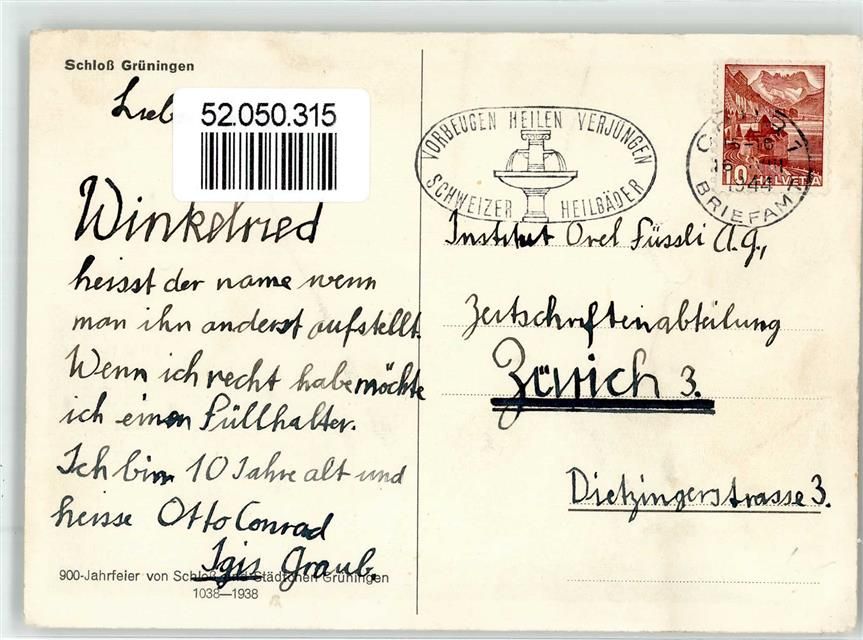 Schloß Grüningen
52.050.315
Winkelried
heisst der name wenn
man ihn anderst aufstellt.
Wenn ich recht habe möchte
ich einen Füllhalter.
Ich bin 10 Jahre alt und
heisse Otto Conrad
Igis Graub.
900-Jahrfeier von Schloß und Städtchen Grüningen
1038—1938
VORBEUGEN HEILEN VERJÜNGEN
SCHWEIZER HEILBÄDER
1944
BRIEFAM
10 HELVETIA
Institut Orel Füssli A.G.,
Zeitschriftenabteilung
Zürich 3.
Dietzingerstrasse 3.